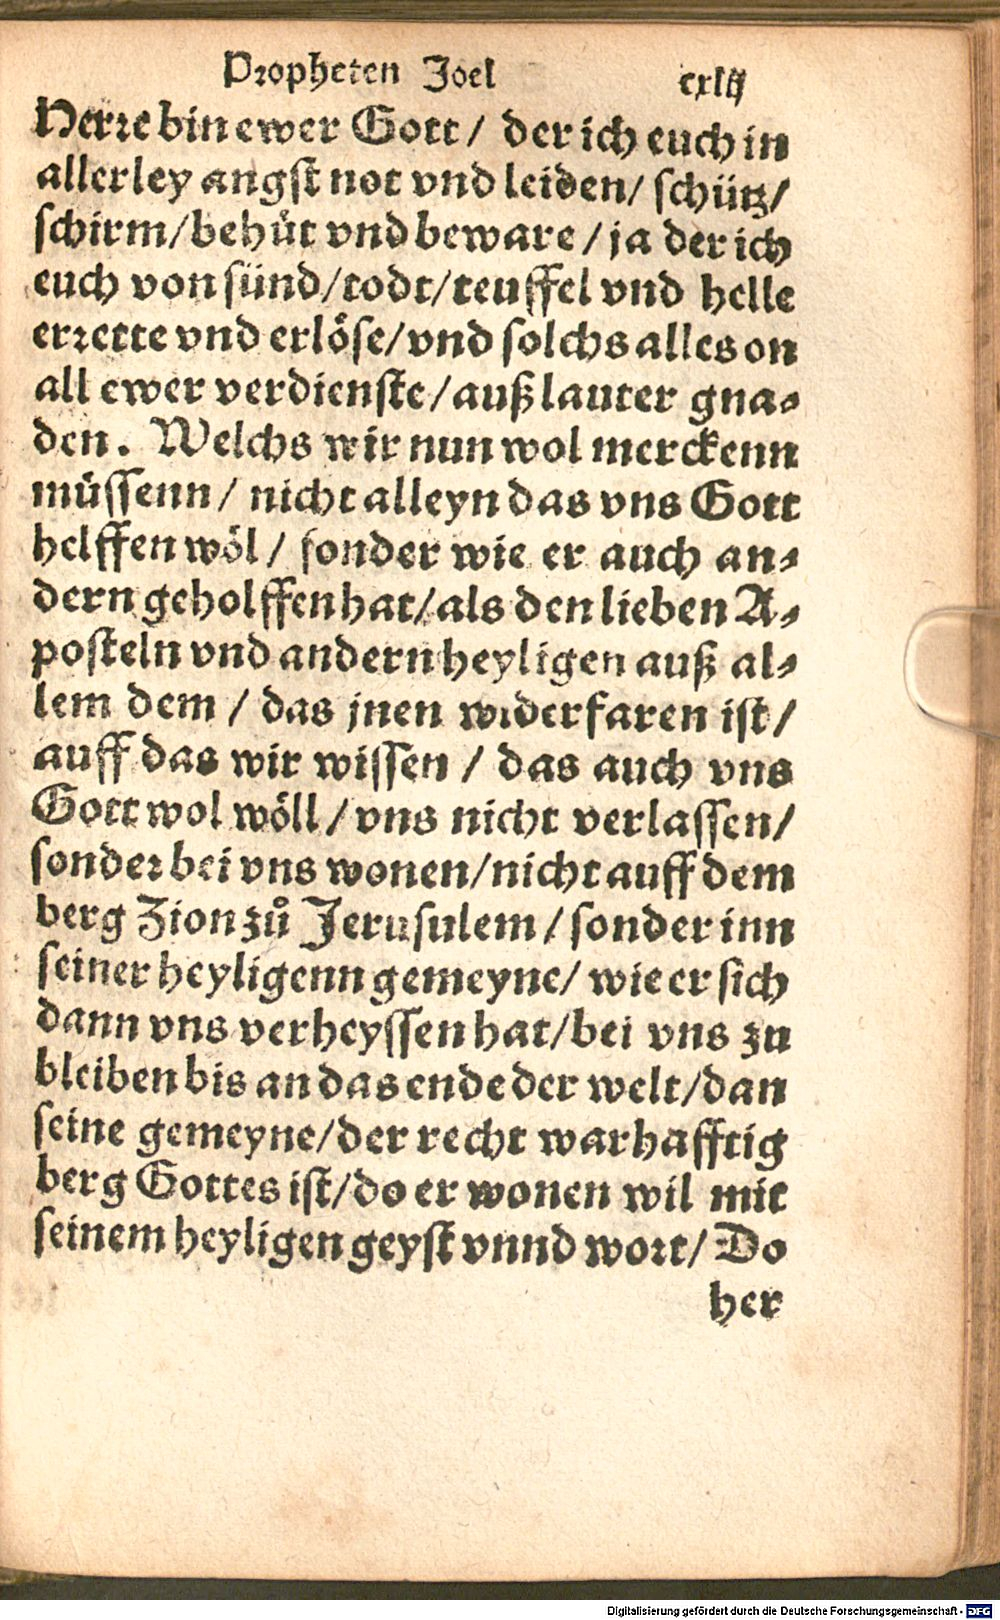 Propheten Joel cxlij
Herre bin ewer Gott / der ich euch in
allerley angst not vnd leiden / schütz /
schirm / behüt vnd beware / ja der ich
euch von sünd / todt / teuffel vnd helle
errette vnd erlöse / vnd solchs alles on
all ewer verdienste / auß lauter gna⸗
den. Welchs wir nun wol merckenn
müssenn / nicht alleyn das vns Gott
helffen wöl / sonder wie er auch an⸗
dern geholffen hat / als den lieben A⸗
posteln vnd andern heyligen auß al⸗
lem dem / das jnen widerfaren ist /
auff das wir wissen / das auch vns
Gott wol wöll / vns nicht verlassen /
sonder bei vns wonen / nicht auff dem
berg Zion zů Jerusulem / sonder inn
seiner heyligenn gemeyne / wie er sich
dann vns verheyssen hat / bei vns zu
bleiben bis an das ende der welt / dan
seine gemeyne / der recht warhafftig
berg Gottes ist / do er wonen wil mit
seinem heyligen geyst vnnd wort / Do
her
Digitalisierung gefördert durch die Deutsche Forschungsgemeinschaft - DFG